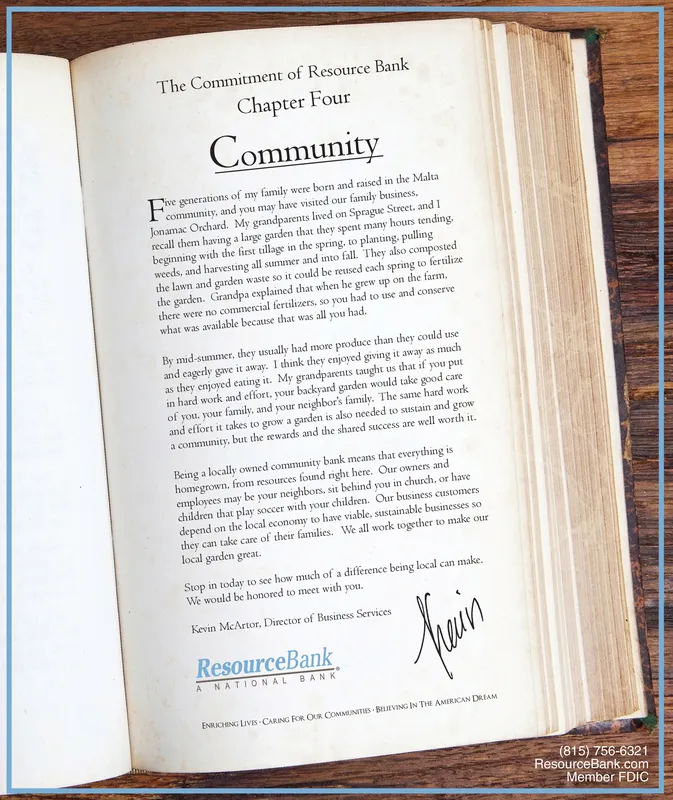 The Commitment of Resource Bank
Chapter Four
Community
Five generations of my family were born and raised in the Malta
community, and you may have visited our family business,
Jonamac Orchard. My grandparents lived on Sprague Street, and I
recall them having a large garden that they spent many hours tending,
beginning with the first tillage in the spring, to planting, pulling
weeds, and harvesting all summer and into fall. They also composted
the lawn and garden waste so it could be reused each spring to fertilize
the garden. Grandpa explained that when he grew up on the farm,
there were no commercial fertilizers, so you had to use and conserve
what was available because that was all you had.
By mid-summer, they usually had more produce than they could use
and eagerly gave it away. I think they enjoyed giving it away as much
as they enjoyed eating it. My grandparents taught us that if you put
in hard work and effort, your backyard garden would take good care
of you, your family, and your neighbor's family. The same hard work
and effort it takes to grow a garden is also needed to sustain and grow
a community, but the rewards and the shared success are well worth it.
Being a locally owned community bank means that everything is
homegrown, from resources found right here. Our owners and
employees may be your neighbors, sit behind you in church, or have
children that play soccer with your children. Our business customers
depend on the local economy to have viable, sustainable businesses so
they can take care of their families. We all work together to make our
local garden great.
Stop in today to see how much of a difference being local can make.
We would be honored to meet with you.
Kevin McArtor, Director of Business Services
Kevin
ResourceBank®
A NATIONAL BANK
ENRICHING LIVES · CARING FOR OUR COMMUNITIES · BELIEVING IN THE AMERICAN DREAM
(815) 756-6321
ResourceBank.com
Member FDIC